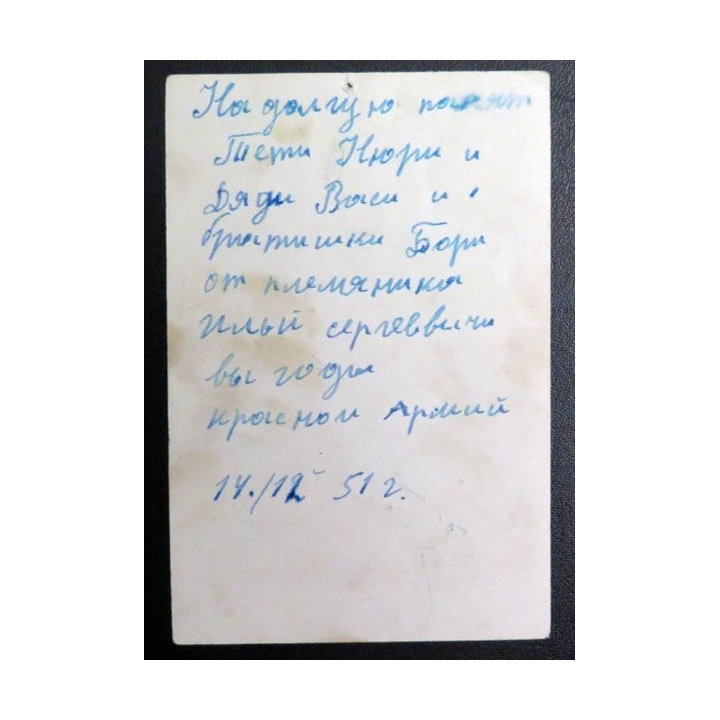 На долгую памят
Тети Нюри и
Дяди Васи и
братишки Бори
от племяника
Ильи сергеевичи
вы годы
красной Армий
14./12 51 г.